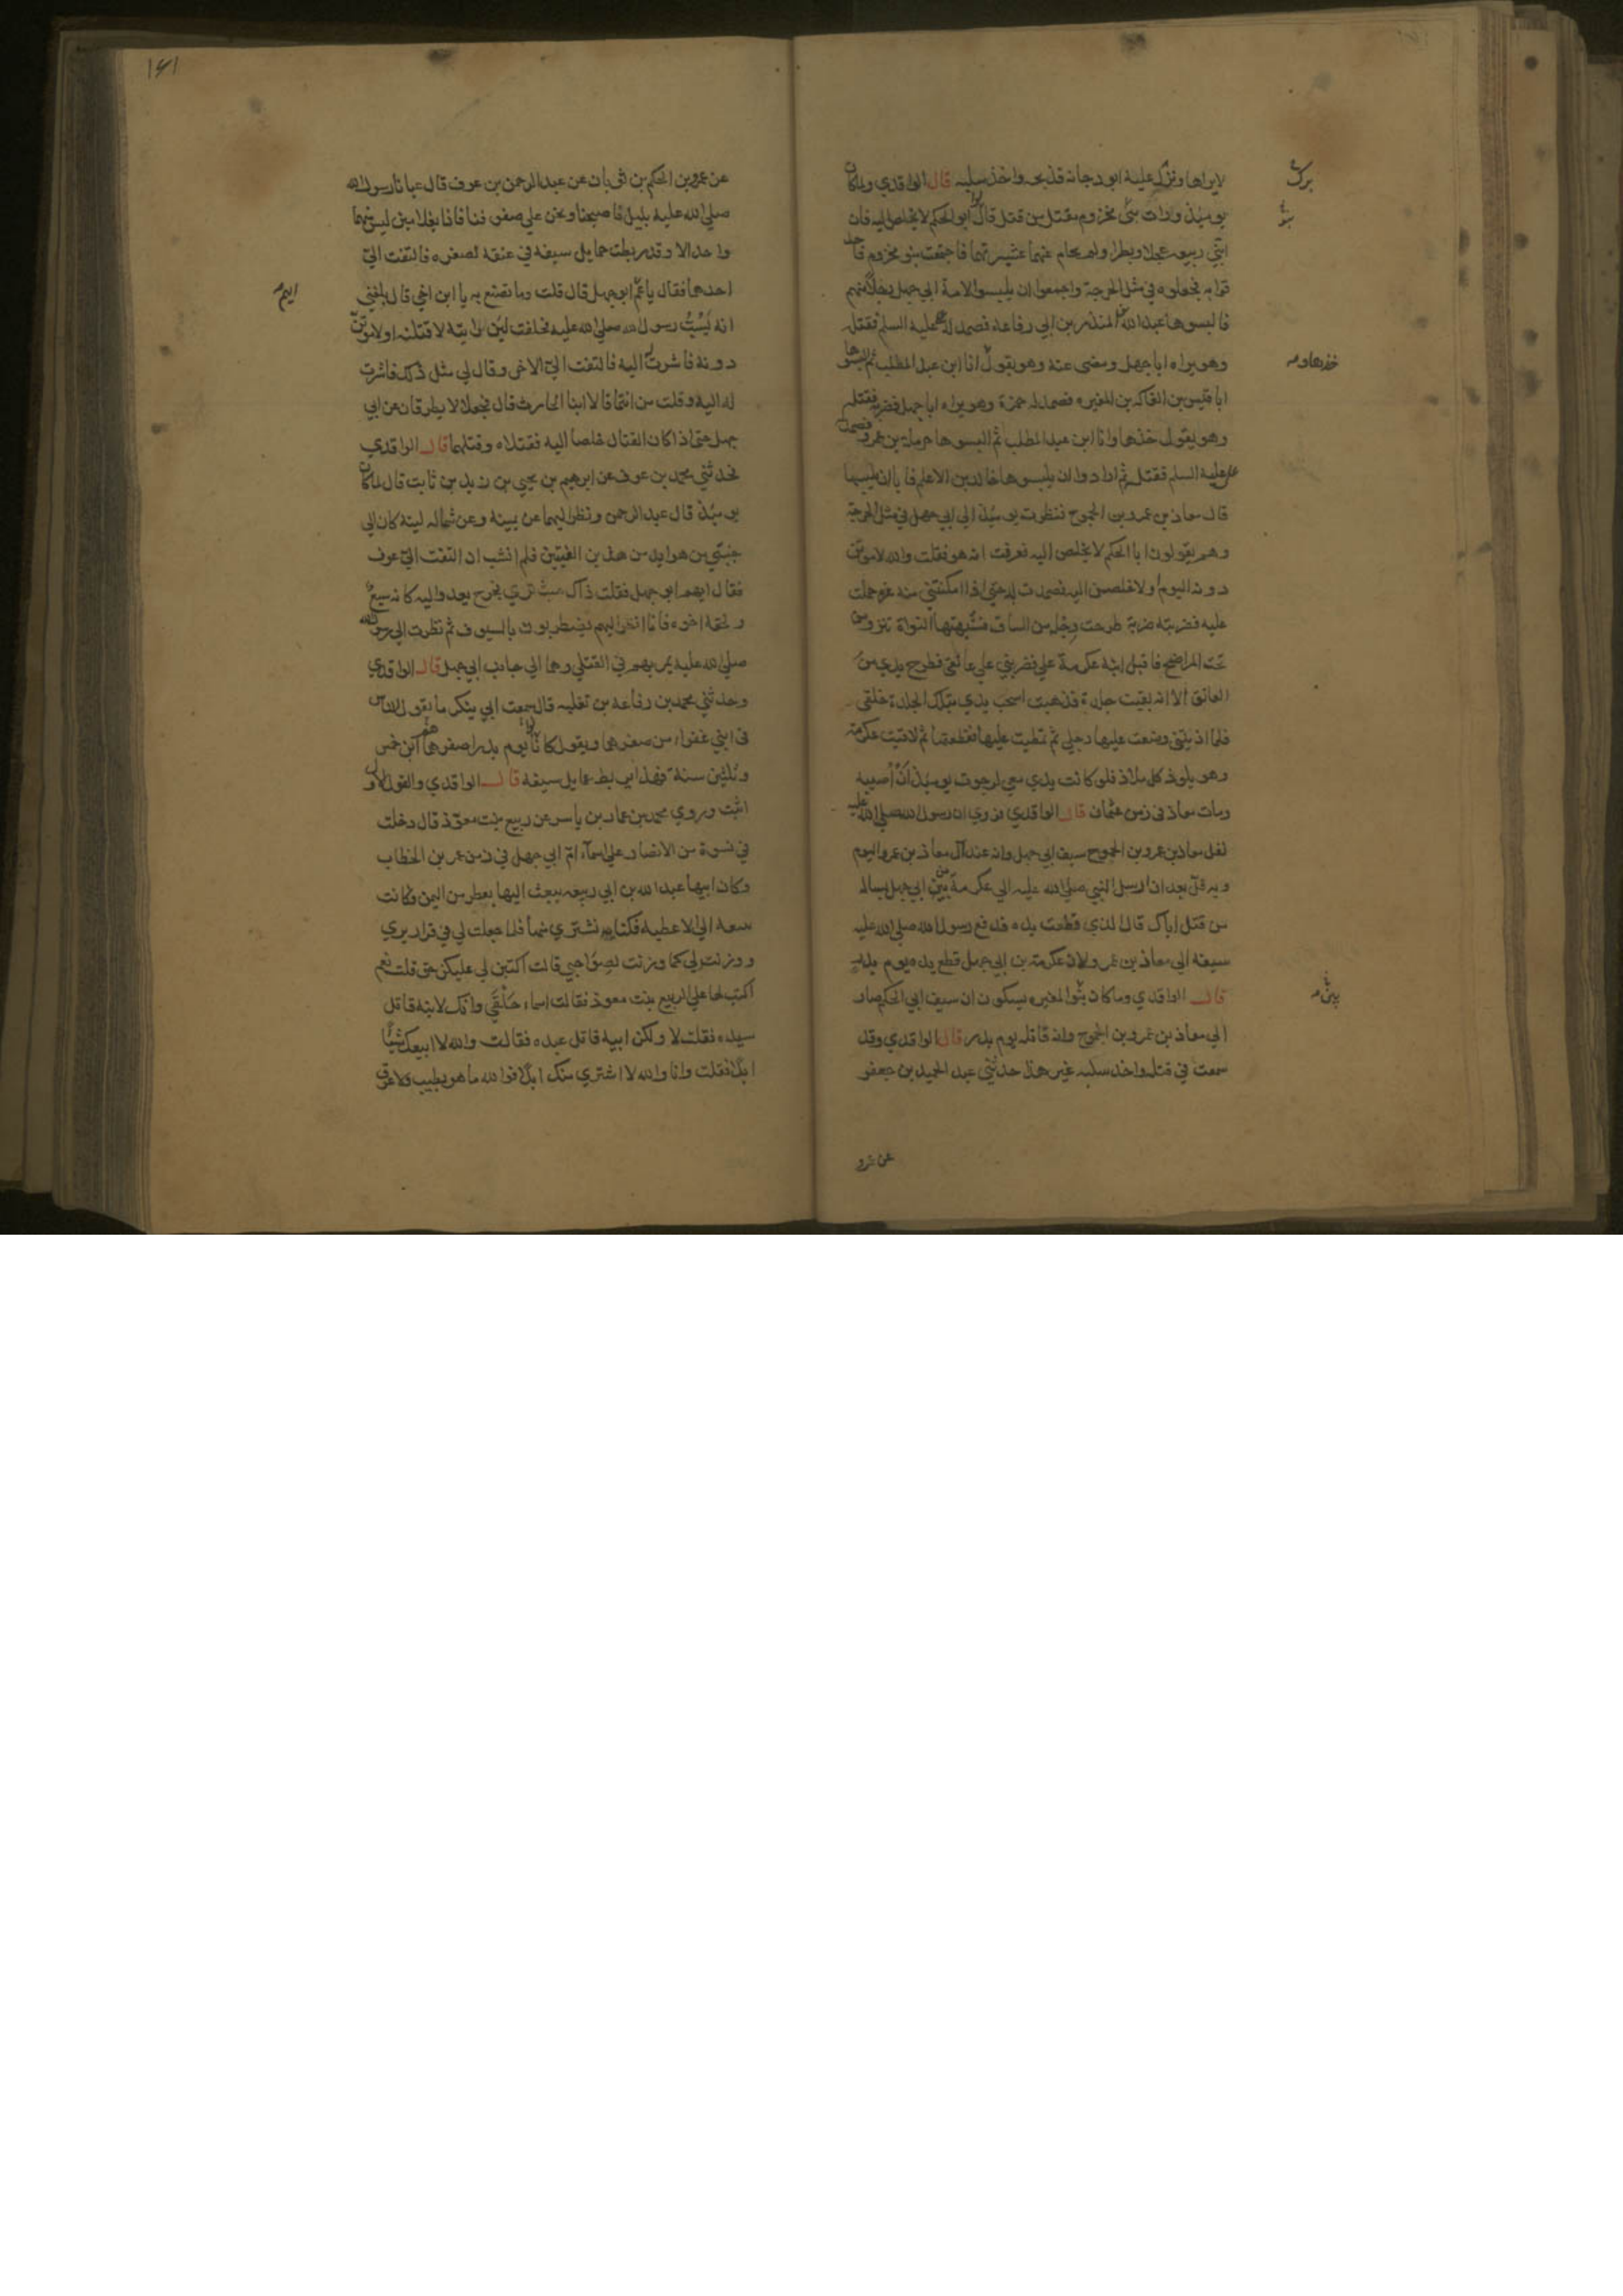 لايراها ونزل عليه ابو دجانه فذبحه واخذ سلبه قال الواقدي ولما كان
يومئذ ورات بني مخزوم مقتل من قتل قالوا ابو الحكم لا يخلص اليه فان
ابني ربيعه عجلا وبطرا ولم يحام عنهما عشيرتهما فاجتمعت بنو مخزوم فاحد
قوا به فجعلوه في مثل الحرجة واجمعوا ان يلبسوا لامة ابي جهل رجلا منهم
فالبسوها عبد الله بن المنذر بن ابي رفاعه فصمد له علي عليه السلم فقتله
وهو يراه ابا جهل ومضى عنه وهو يقول انا ابن عبد المطلب ثم البسوها
ابا قيس بن الفاكه بن المغيره فصمد له حمزة وهو يراه ابا جهل فضربه فقتله
وهو يقول خذها وانا ابن عبد المطلب ثم البسوها حرملة بن عمرو فصمد له
علي عليه السلم فقتله ثم ارادوا ان يلبسوها خالد بن الاعلم فابا ان يلبسها
قال معاذ بن عمرو بن الجموح فنظرت يومئذ الي ابي جهل في مثل الحرجة
وهم يقولون ابا الحكم لا يخلص اليه فعرفت انه هو فقلت والله لاموتن
دونه اليوم او لاخلصن اليه فصمدت له حتي اذا امكنتني منه غره حملت
عليه فضربته ضربة طرحت رجله من الساق فشبهتها النواة تنزو من
تحت المراضح فاقبل ابنه عكرمة علي فضربني علي عاتقي فطرح يدي من
العاتق الا انه بقيت جلدة فذهبت اسحب يدي بتلك الجلدة خلفي
فلما اذيتني وضعت عليها رجلي ثم تمطيت عليها فقطعتها ثم لاقيت عكرمة
وهو يلوذ كل ملاذ فلو كانت يدي معي لرجوت يومئذ ان اصيبه
ومات معاذ في زمن عثمان قال الواقدي فروي ان رسول الله صلي الله عليه
نفل معاذ بن عمرو بن الجموح سيف ابي جهل وانه عند آل معاذ بن عمرو اليوم
وبه فل بعد ان ارسل النبي صلي الله عليه الي عكرمة بن ابي جهل يساله
من قتل اباك قال الذي قطعت يده فدفع رسول الله صلي الله عليه
سيفه الي معاذ بن عمرو لان عكرمة بن ابي جهل قطع يده يوم بدر
قال الواقدي وما كان بنوا المغيره يشكون ان سيف ابي الحكم صار
الي معاذ بن عمرو بن الجموح وانه قاتله يوم بدر قال الواقدي وقد
سمعت في قتله واخذ سلبه غير هذا حدثني عبد الحميد بن جعفر
عن عمرو
١٤١
عن عمرو بن الحكم بن ثوبان عن عبد الرحمن بن عوف قال عبانا رسول الله
صلي الله عليه بليل فاصبحنا ونحن علي صفوفنا فاذا بغلامين ليس منهما
واحد الا وقد ربطت حمايل سيفه في عنقه لصغره فالتفت الي
احدهما فقال يا عم ايهم ابو جهل قال قلت وما تصنع به يا ابن اخي قال بلغني
انه يسب رسول الله صلي الله عليه فحلفت لئن رايته لاقتلنه او لاموتن
دونه فاشرت له اليه فالتفت الي الاخر وقال لي مثل ذلك فاشرت
له اليه وقلت من انتما قالا ابنا الحارث قال فجعلا لا يطرفان عن ابي
جهل حتي اذا كان القتال خلصا اليه فقتلاه وقتلهما قال الواقدي
فحدثني محمد بن عوف عن ابرهيم بن يحيي بن زيد بن ثابت قال لما كان
يومئذ قال عبد الرحمن ونظر اليهما عن يمينه وعن شماله ليته كان الي
جنبي من هو ايد من هذين الفتيين فلم انشب ان التفت الي عوف
فقال ايهم ابو جهل فقلت ذاك حيث تري فخرج يعدو اليه كانه سبع
ولحقه اخوه فانا انظر اليهم يضطربون بالسيوف ثم نظرت الي رسول الله
صلي الله عليه يمر بهم في القتلي وهما الي جانب ابي جهل قال الواقدي
وحدثني محمد بن رفاعه بن ثعلبه قال سمعت ابي ينكر ما يقول الناس
في ابني عفراء من صغرهما ويقول كانوا يوم بدر اصغرهما ابن خمس
وثلثين سنة فهذا يربط حمايل سيفه قال الواقدي والقول الاول
اثبت وروي محمد بن عمار بن ياسر عن ربيع بنت معوذ قال دخلت
في نسوة من الانصار علي اسماء ام ابي جهل في زمن عمر بن الخطاب
وكان ابنها عبد الله بن ابي ربيعه يبعث اليها بعطر من اليمن وكانت
تبيعه الي الاعطيه فكنا نشتري منها فلما جعلت لي في قراريري
ووزنت لي كما وزنت لصواحبي قالت اكتبن لي عليكن حقي قلت نعم
اكتب لها علي الربيع بنت معوذ فقالت اسماء حلقي وانك لابنة قاتل
سيده فقلت لا ولكن ابنة قاتل عبده فقالت والله لا ابيعك شيئا
ابدا فقلت وانا والله لا اشتري منك ابدا فوالله ما هو بطيب ولا عرف